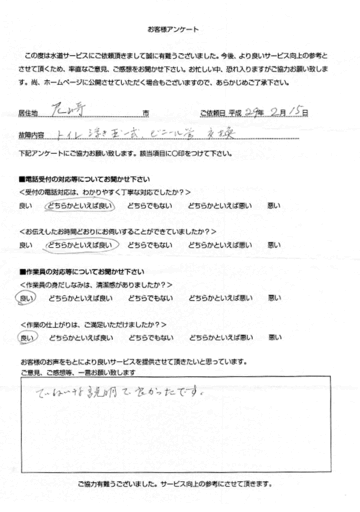 お客様アンケート
この度は水道サービスにご依頼頂きまして誠に有難うございました。今後、より良いサービス向上の参考と
させて頂くため、率直なご意見、ご感想をお聞かせ下さい。お忙しい中、恐れ入りますがご協力お願い致しま
す。尚、ホームページに公開させていただく場合もございますので、あらかじめご了承下さい。
居住地 尼崎 市 ご依頼日 平成 29年 2月 15日
故障内容 トイレ 浮き玉一式、ビニール管 交換
下記アンケートにご協力お願い致します。該当項目に〇印をつけて下さい。
■電話受付の対応等についてお聞かせ下さい
<受付の電話対応は、わかりやすく丁寧な対応でしたか?>
良い どちらかといえば良い どちらでもない どちらかといえば悪い 悪い
<お伝えしたお時間どおりにお伺いすることができていましたか?>
良い どちらかといえば良い どちらでもない どちらかといえば悪い 悪い
■作業員の対応等についてお聞かせ下さい
<作業員の身だしなみは、清潔感がありましたか?>
良い どちらかといえば良い どちらでもない どちらかといえば悪い 悪い
<作業の仕上がりは、ご満足いただけましたか?>
良い どちらかといえば良い どちらでもない どちらかといえば悪い 悪い
お客様のお声をもとにより良いサービスを提供させて頂きたいと思っています。
ご意見、ご感想等、一言お願い致します
ていねいな説明で良かったです。
ご協力有難うございました。サービス向上の参考にさせて頂きます。